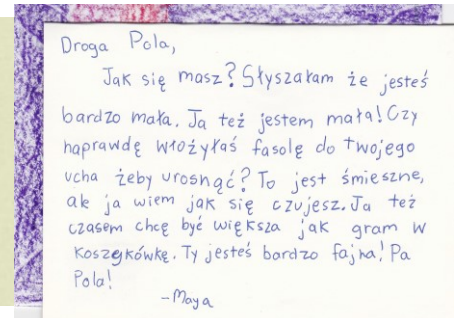 Droga Pola,
Jak się masz? Słyszałam że jesteś
bardzo mała. Ja też jestem mała! Czy
naprawdę włożyłaś fasolę do twojego
ucha żeby urosnąć? To jest śmieszne,
ale ja wiem jak się czujesz. Ja też
czasem chcę być większa jak gram w
koszykówkę. Ty jesteś bardzo fajna! Pa
Pola!
-Maya